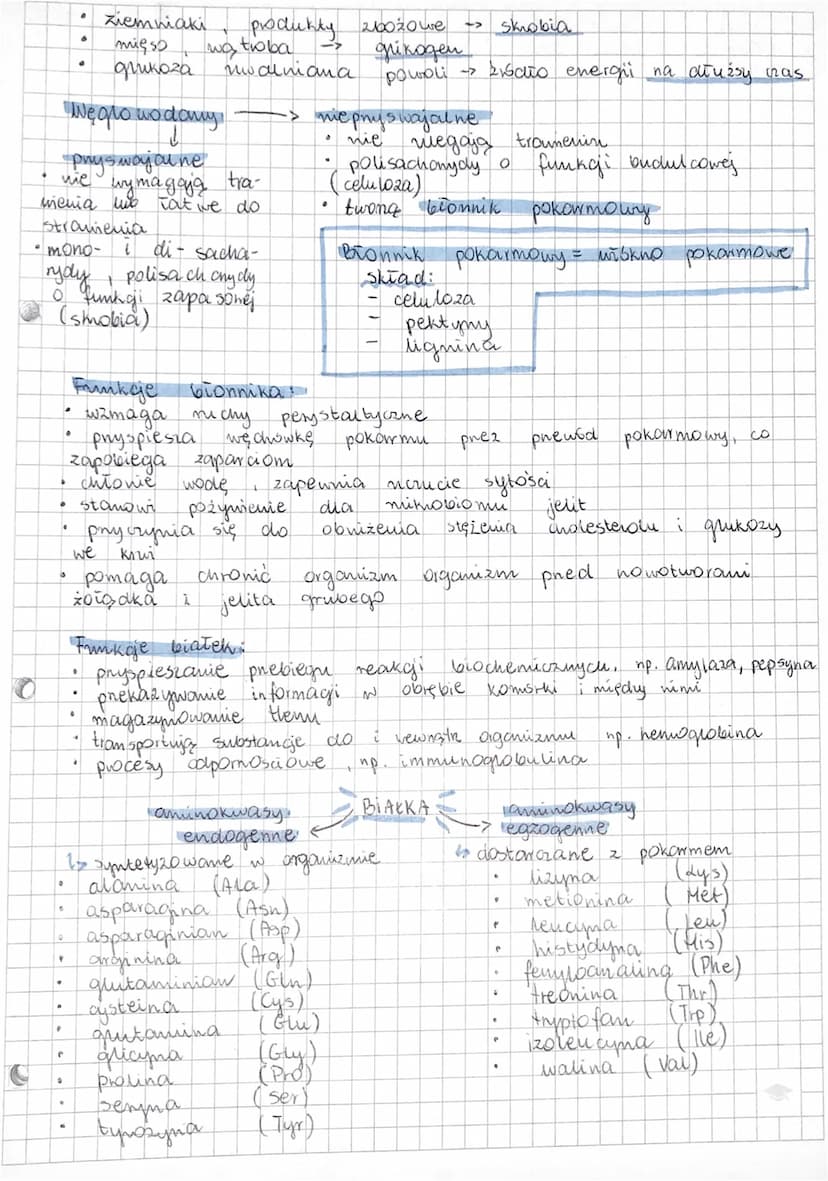 • ziemniaki, produkty zbożowe -> skrobia
• mięso, wątroba -> glikogen
• glukoza uwalniana powoli -> źródło energii na dłuższy czas
Węglowodany -> nieprzyswajalne
• nie ulegają trawieniu
• polisacharydy o funkcji budulcowej
(celuloza)
• tworzą błonnik pokarmowy
przyswajalne
• nie wymagają tra-
wienia lub łatwe do
strawienia
• mono- i di-sacha-
rydy, polisacharydy
o funkcji zapasowej
(skrobia)
Błonnik pokarmowy = włókno pokarmowe
skład:
- celuloza
- pektyny
- lignina
Funkcje błonnika:
• wzmaga ruchy perystaltyczne
• przyspiesza wędrówkę pokarmu przez przewód pokarmowy, co
zapobiega zaparciom
• chłonie wodę, zapewnia uczucie sytości
• stanowi pożywienie dla mikrobiomu jelit
• przyczynia się do obniżenia stężenia cholesterolu i glukozy
we krwi
• pomaga chronić organizm organizm przed nowotworami
żołądka i jelita grubego
Funkcje białek:
• przyspieszanie przebiegu reakcji biochemicznych, np. amylaza, pepsyna
• przekazywanie informacji w obrębie komórki i między nimi
• magazynowanie tlenu
• transportują substancje do i wewnątrz organizmu np. hemoglobina
• procesy odpornościowe, np. immunoglobulina
BIAŁKA
aminokwasy
endogenne
↳ syntetyzowane w organizmie
• alanina (Ala)
• asparagina (Asn)
• asparaginian (Asp)
• arginina (Arg)
• glutaminian (Gln)
• cysteina (Cys)
• glutamina (Glu)
• glicyna (Gly)
• prolina (Pro)
• seryna (Ser)
• tyrozyna (Tyr)
aminokwasy
egzogenne
↳ dostarczane z pokarmem
• lizyna (Lys)
• metionina (Met)
• leucyna (Leu)
• histydyna (His)
• fenyloanalina (Phe)
• treonina (Thr)
• tryptofan (Trp)
• izoleucyna (Ile)
• walina (Val)